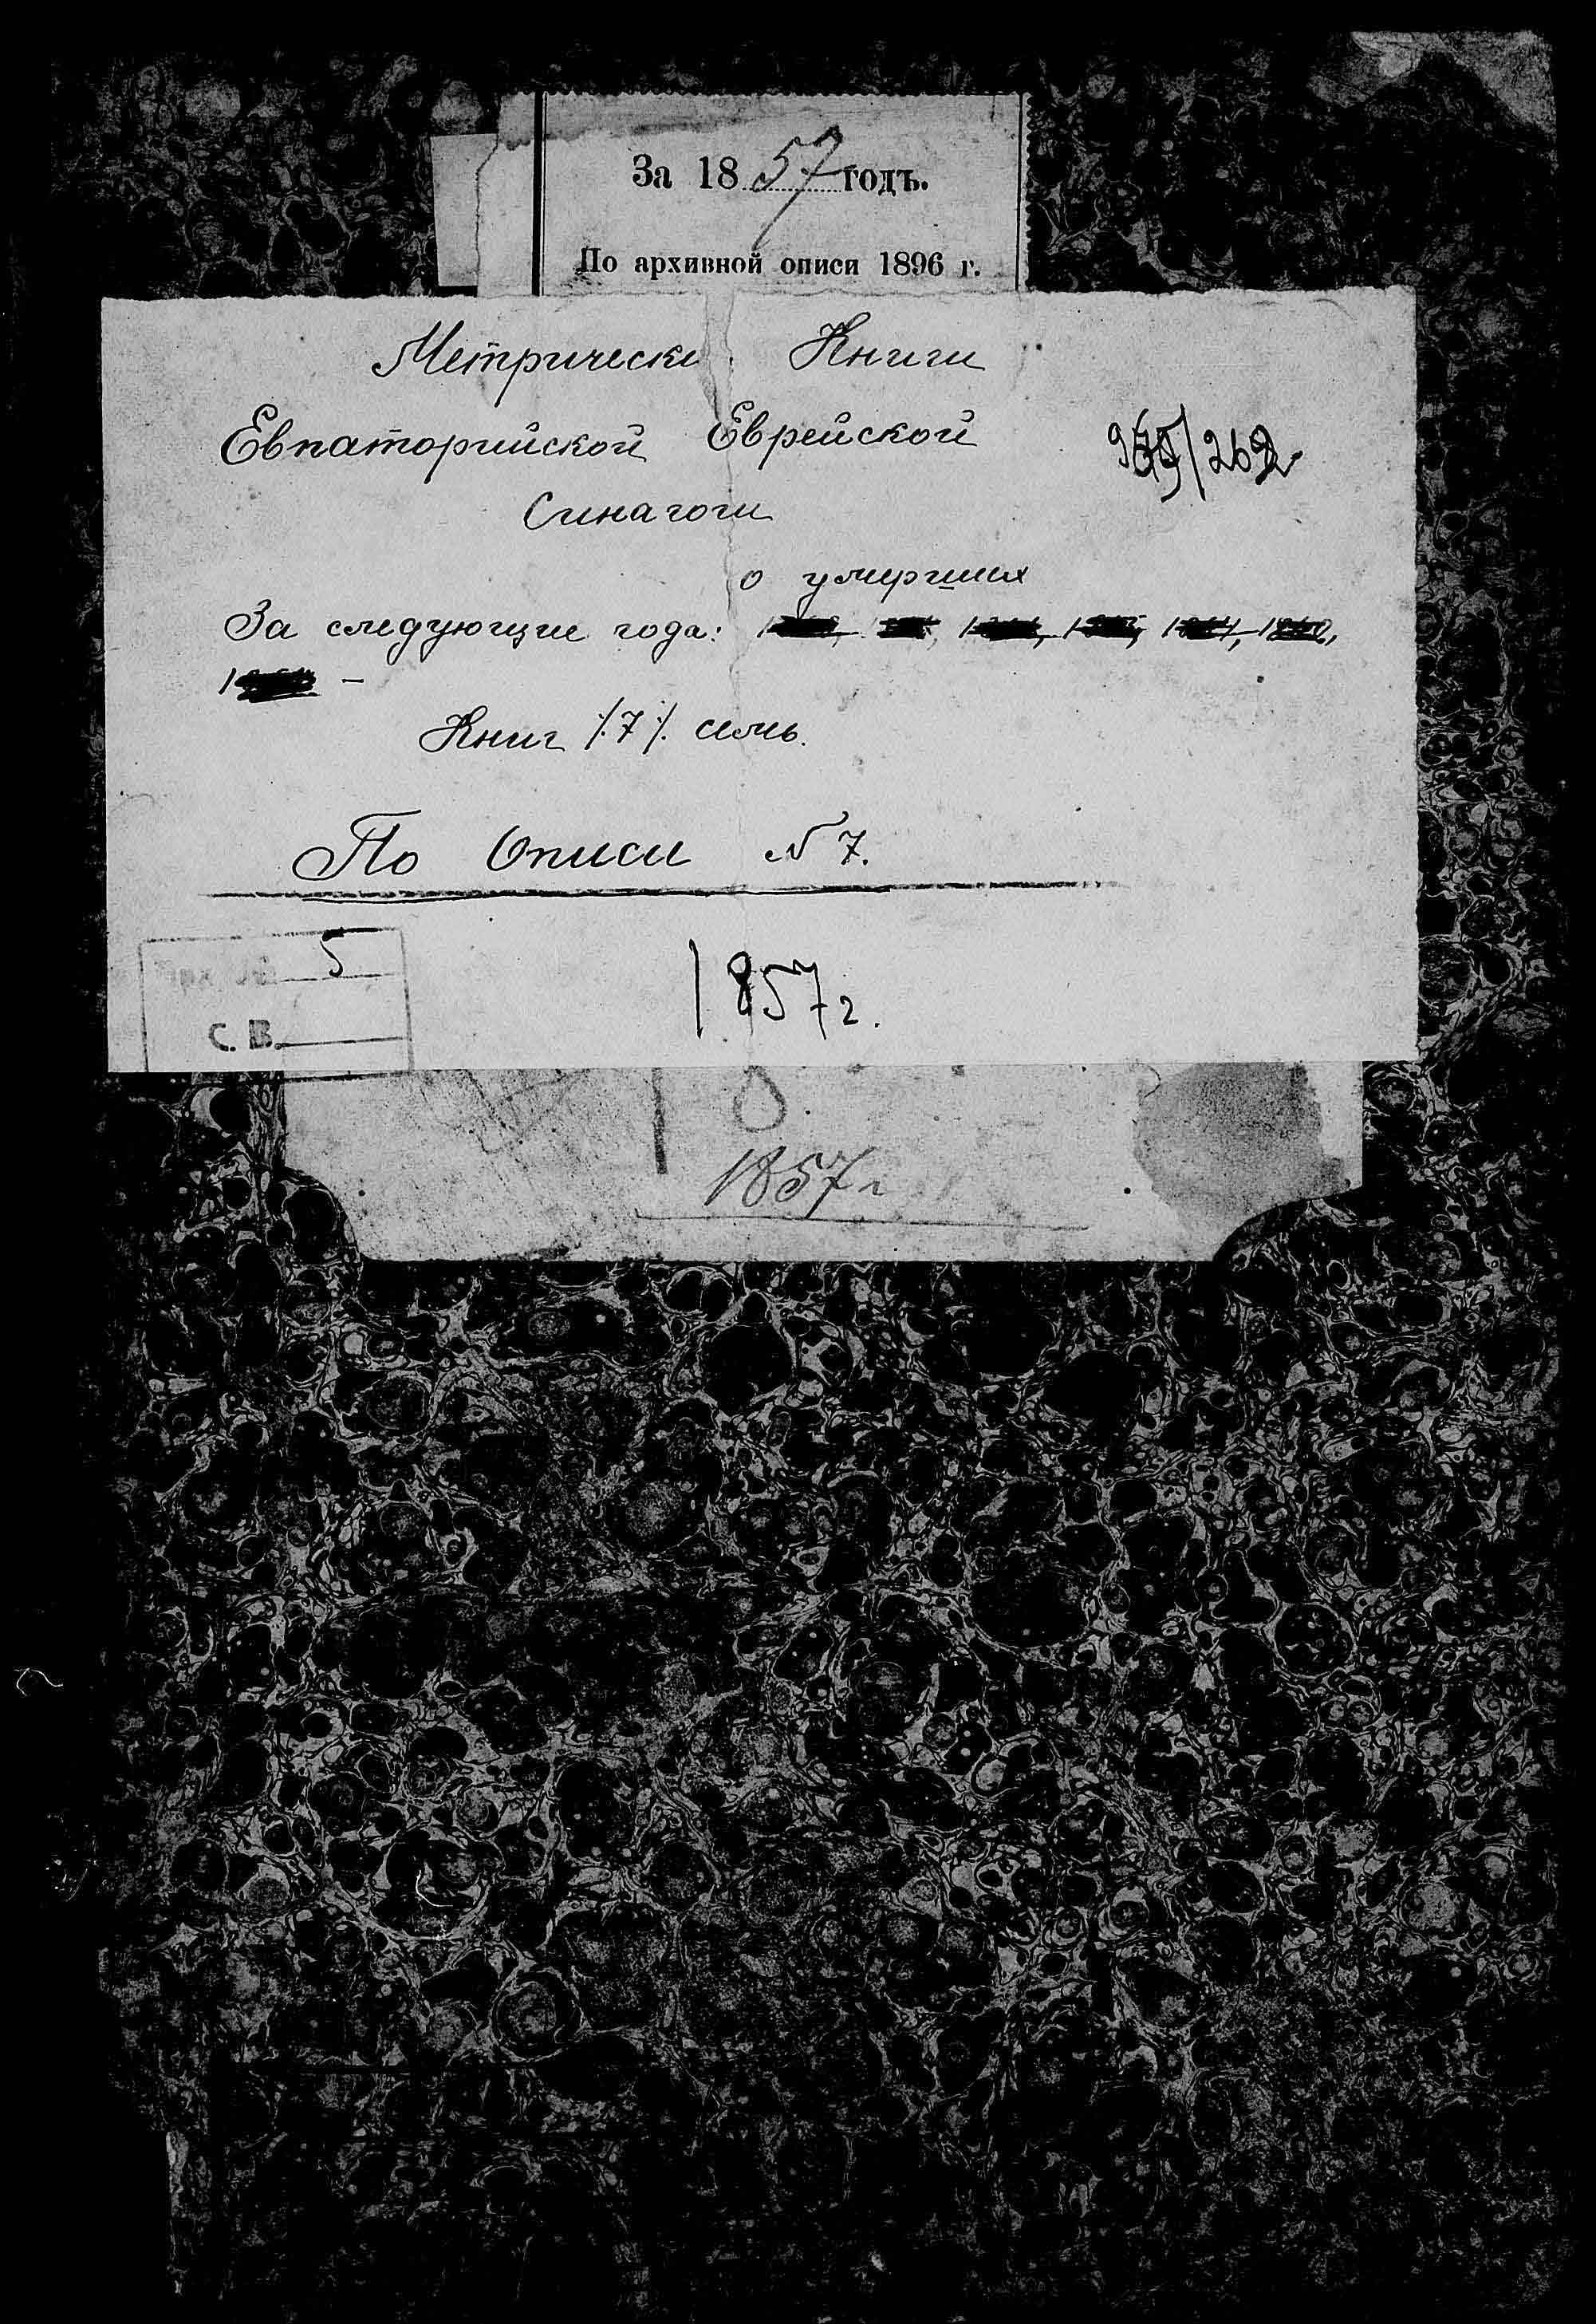 За 1857 годъ.
По архивной описи 1896 г.
Метрически Книги
Евпаторийской Еврейской
Синагоги
о умерших
За следующие года:
Книг /7/ семь.
По Описи N 7.
5
С. В.
1857 г.
1857 г